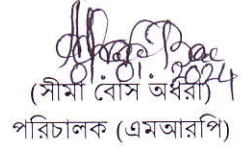 01.01.2024
(সীমা বোস অধরা)
পরিচালক (এমআরপি)